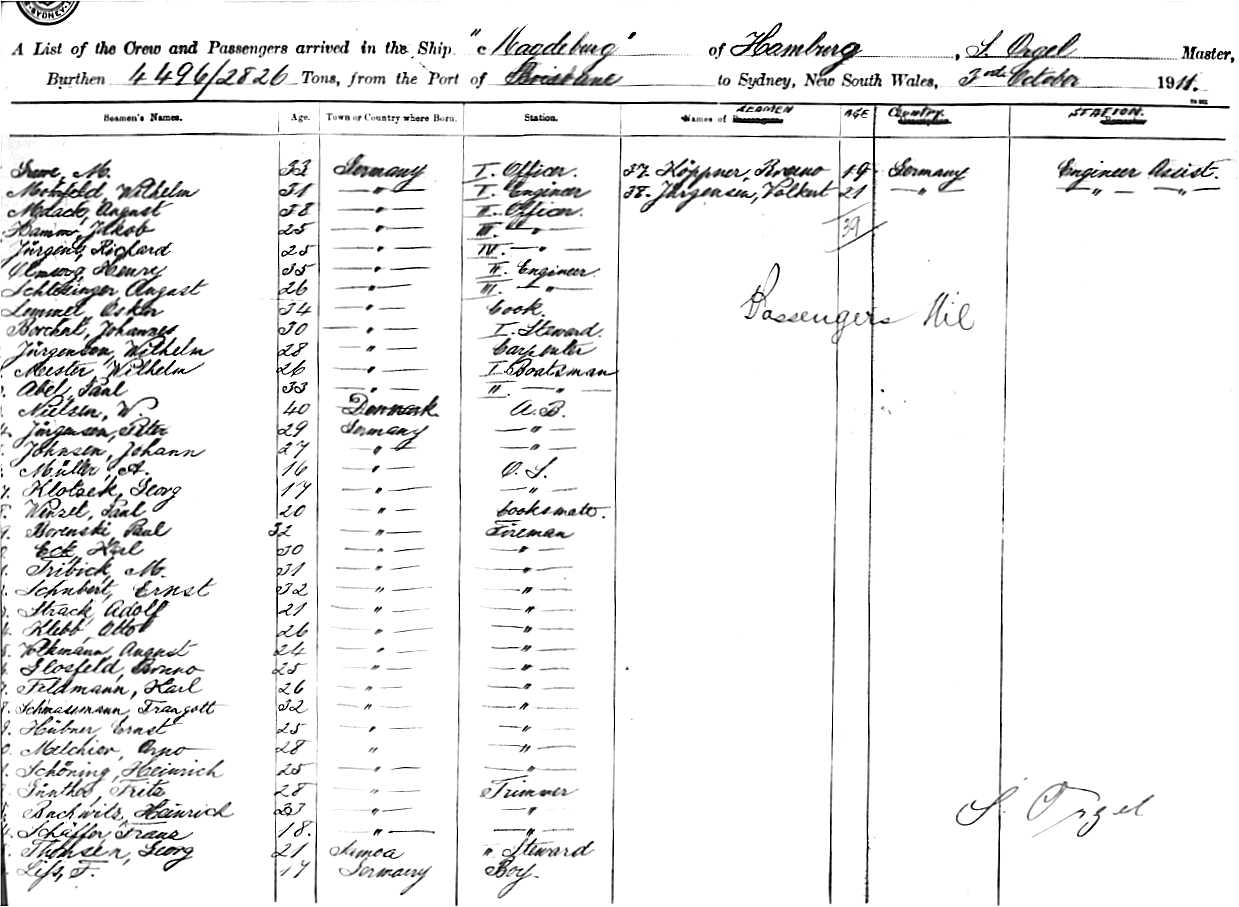 SYDNEY
A List of the Crew and Passengers arrived in the Ship "Magdeburg" of Hamburg, S. Orgel Master,
Burthen 4496/2826 Tons, from the Port of Brisbane to Sydney, New South Wales, 3rd October 1911.
Seamen's Names. Age. Town or Country where Born. Station. Names of SEAMEN AGE Country. STATION.
M. 33 Germany I. Officer. 37. Köppner, Bruno 19 Germany Engineer Assist.
Mohnfeld, Wilhelm 31 —〃— I. Engineer 38. Jürgensen, Volkert 21 —〃— —〃—〃—
Medack, August 38 —〃— II. Officer.
Hamm, Jakob 25 —〃— III. —〃— 39
Jürgens, Richard 25 —〃— IV. —〃—
Henry 35 —〃— II. Engineer
Schlesinger August 26 —〃— III. —〃—
Lemmel, Oskar 34 —〃— Cook.
Borchert, Johannes 30 —〃— I. Steward. Passengers Nil
Jürgensen, Wilhelm 28 —〃— Carpenter
Meister, Wilhelm 26 —〃— I. Boatsman
Abel, Paul 33 —〃— II. —〃—
Nielsen, W. 40 Denmark A.B.
Jürgensen, Peter 29 Germany —〃—
Johnsen, Johann 27 —〃— —〃—
Müller, A. 16 —〃— O.S.
7. Klotsek, Georg 17 —〃— —〃—
8. Wenzel, Paul 20 —〃— Cooksmate.
9. Borenski, Paul 32 —〃— Fireman
0. Eck, Karl 30 —〃— —〃—
Tribick, M. 31 —〃— —〃—
Schubert, Ernst 32 —〃— —〃—
Strack, Adolf 21 —〃— —〃—
4. Klebb, Otto 26 —〃— —〃—
5. Volkmann, August 24 —〃— —〃—
6. Glosfeld, Bruno 25 —〃— —〃—
7. Feldmann, Karl 26 —〃— —〃—
8. Schmassmann, Traugott 32 —〃— —〃—
9. Hübner, Ernst 25 —〃— —〃—
0. Melchior, Arno 28 〃 —〃—
Schöning, Heinrich 25 —〃— —〃—
Günther, Fritz 28 —〃— Trimmer
Buchwitz, Heinrich 33 —〃— —〃— S. Orgel
4. Schäffer, Franz 18. —〃— —〃—
Thomsen, Georg 21 Samoa 〃 Steward
F. 17 Germany Boy.